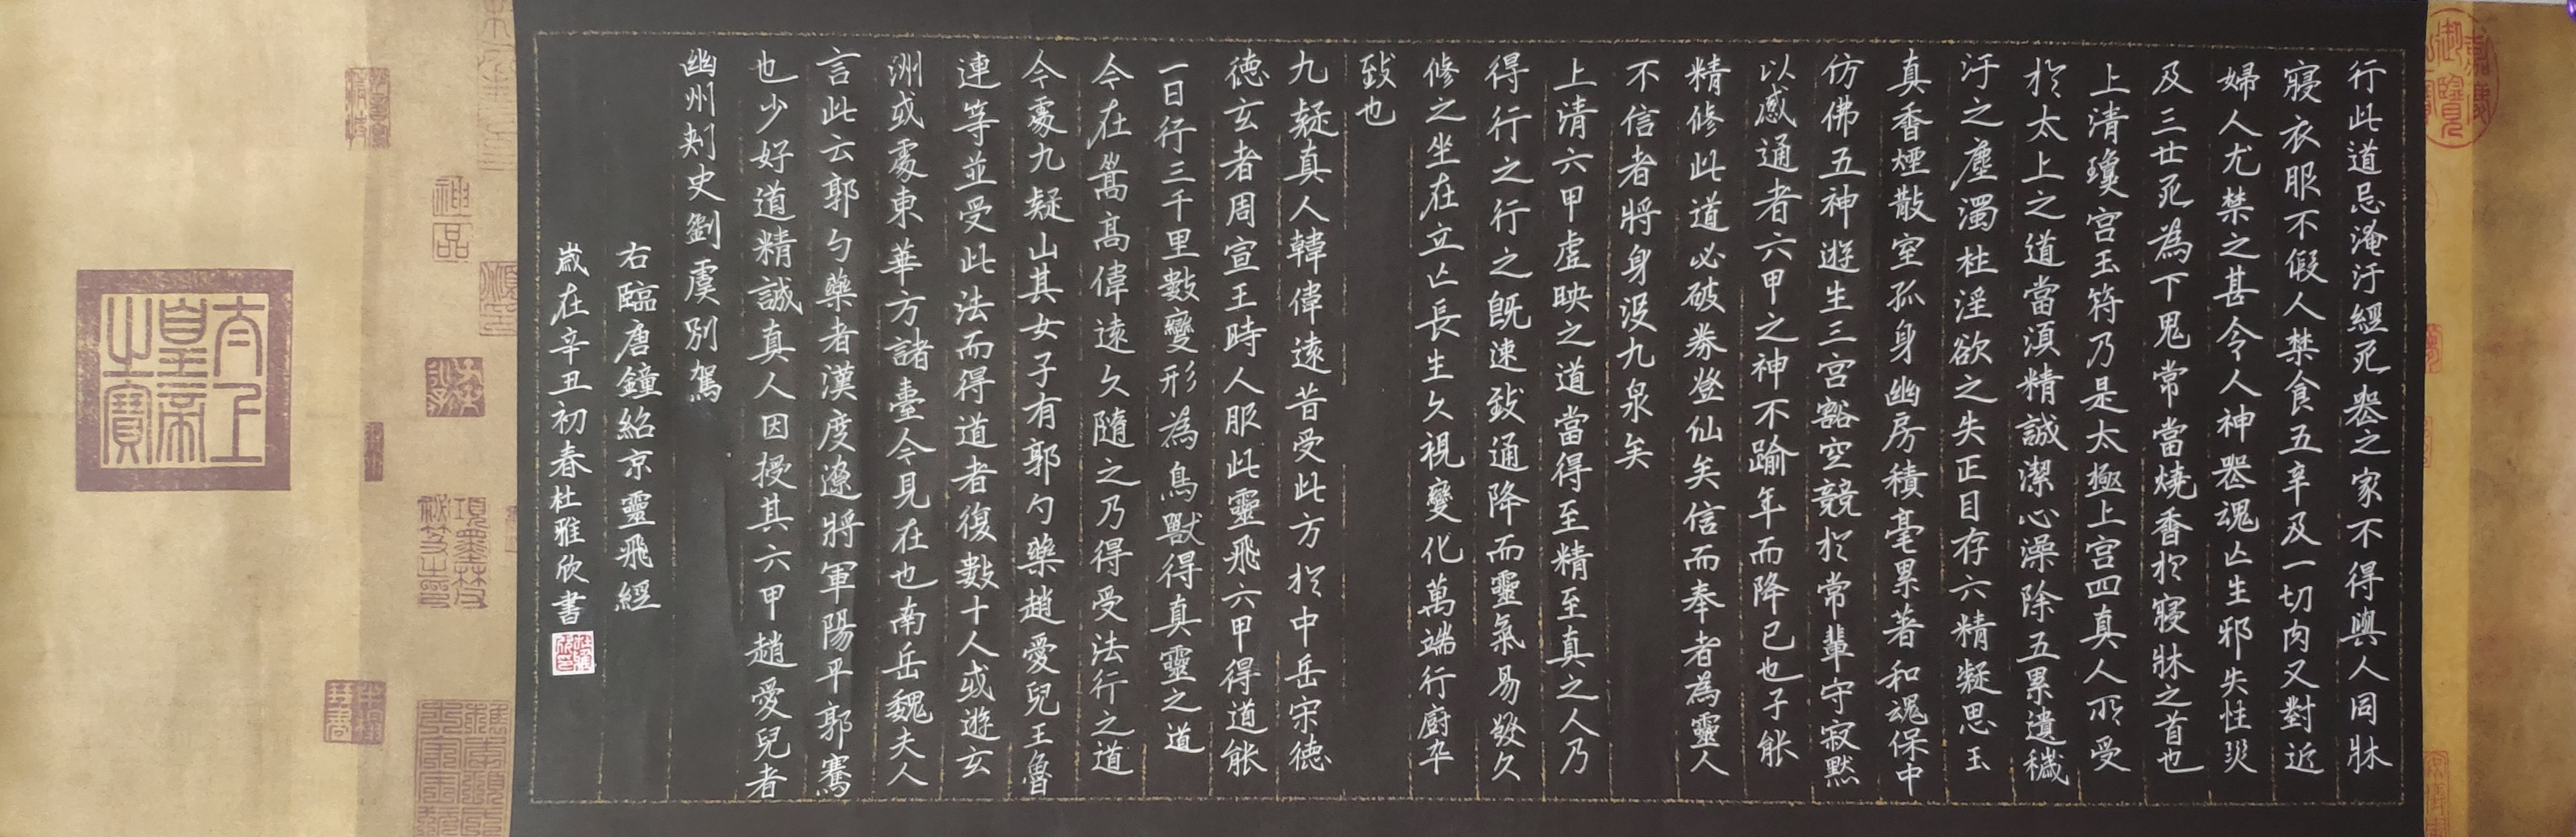 行此道忌淹汙經死喪之家不得與人同牀
寢衣服不假人禁食五辛及一切肉又對近
婦人尤禁之甚令人神喪魂亡生邪失性災
及三世死為下鬼常當燒香於寢牀之首也
上清瓊宮玉符乃是太極上宮四真人所受
於太上之道當須精誠潔心澡除五累遺穢
汙之塵濁杜淫欲之失正目存六精凝思玉
真香煙散室孤身幽房積毫累著和魂保中
仿佛五神遊生三宮豁空競於常輩守寂默
以感通者六甲之神不踰年而降已也子能
精修此道必破券登仙矣信而奉者為靈人
不信者將身沒九泉矣
上清六甲虛映之道當得至精至真之人乃
得行之行之既速致通降而靈氣易發久
修之坐在立亡長生久視變化萬端行廚卒
致也
九疑真人韓偉遠昔受此方於中岳宋德
德玄者周宣王時人服此靈飛六甲得道能
一日行三千里數變形為鳥獸得真靈之道
今在嵩高偉遠久隨之乃得受法行之道
今處九疑山其女子有郭勺藥趙愛兒王魯
連等並受此法而得道者復數十人或遊玄
洲或處東華方諸臺今見在也南岳魏夫人
言此云郭勺藥者漢度遼將軍陽平郭騫
也少好道精誠真人因授其六甲趙愛兒者
幽州刾史劉虞別駕
右臨唐鐘紹京靈飛經
歲在辛丑初春杜雅欣書
太上
皇帝
之寶
神品
項墨林
秘笈之印